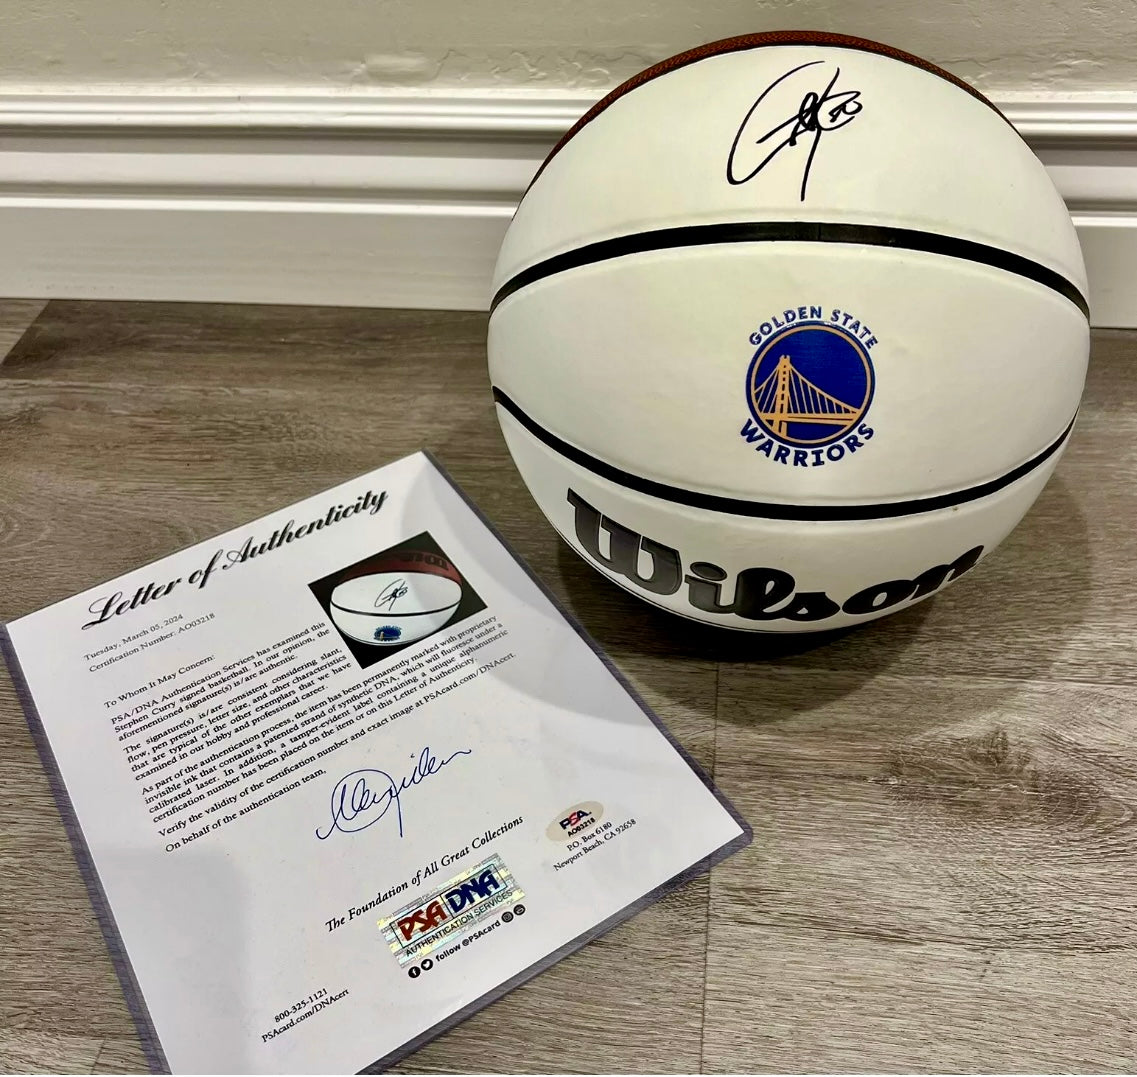 GOLDEN STATE
WARRIORS
Wilson
Letter of Authenticity
Tuesday, March 05, 2024
Certification Number: AO03218
To Whom It May Concern:
PSA/DNA Authentication Services has examined this
Stephen Curry signed basketball. In our opinion, the
aforementioned signature(s) is/are authentic.
The signature(s) is/are consistent considering slant,
flow, pen pressure, letter size, and other characteristics
that are typical of the other exemplars that we have
examined in our hobby and professional career.
As part of the authentication process, the item has been permanently marked with proprietary
invisible ink that contains a patented strand of synthetic DNA, which will fluoresce under a
calibrated laser. In addition, a tamper-evident label containing a unique alphanumeric
certification number has been placed on the item or on this Letter of Authenticity.
Verify the validity of the certification number and exact image at PSAcard.com/DNAcert.
On behalf of the authentication team,
The Foundation of All Great Collections
PSA DNA
AUTHENTICATION SERVICES
follow @PSAcard
PSA
AO03218
P.O. Box 6180
Newport Beach, CA 92658
800-325-1121
PSAcard.com/DNAcert